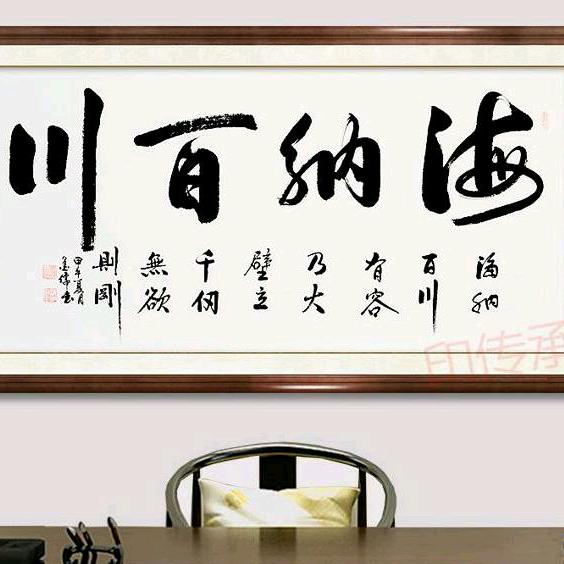 海納百川
海納
百川
有容
乃大
壁立
千仞
無欲
則剛
甲午夏月
印传承